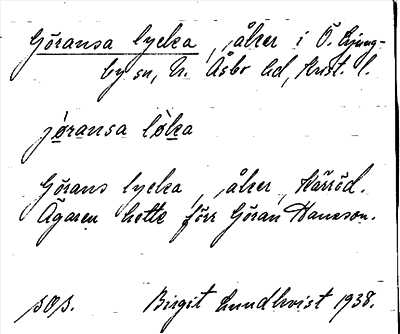 Göransa lycka, åker i Ö. Ljung-
by sn, N. Åsbo hd, Krist. l.
jöransa løka
Görans lycka, åker, Kärröd.
Ägaren hette förr Göran Hansson.
sOs. Birgit Lundkvist 1938.